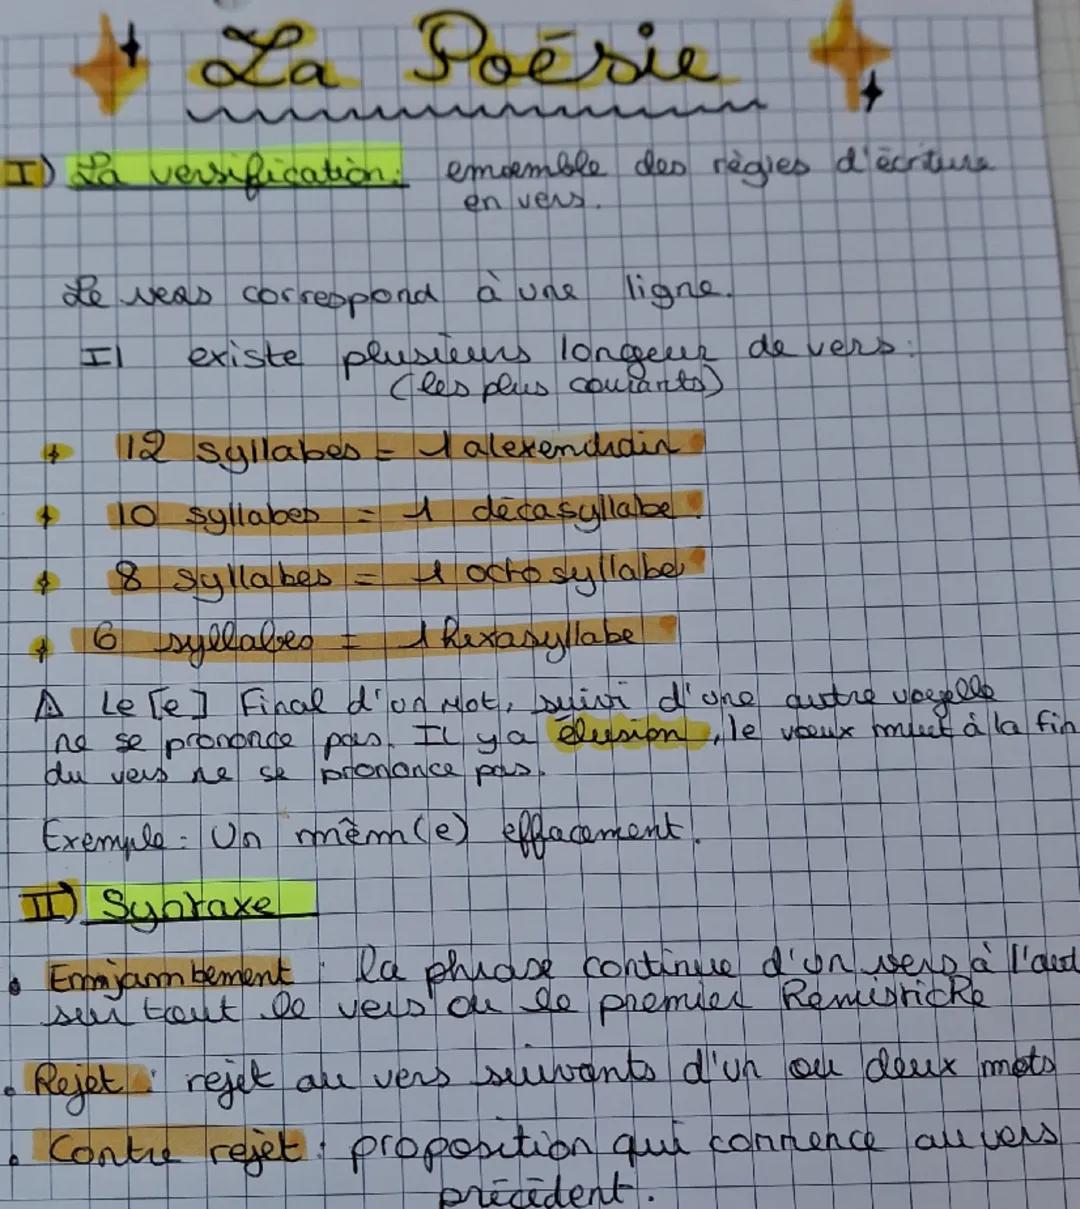 La Poésie
I) La versification: ensemble des règles d'écriture
en vers.
Le vers correspond à une ligne.
Il existe plusieurs longeur de vers:
(les plus courants)
12 syllabes = 1 alexendrain
10 syllabes = 1 décasyllabe.
8 syllabes = 1 octosyllabe
6 syllabes = 1 hexasyllabe
⚠ Le [e] Final d'un Mot, suivi d'une autre voyelle
ne se prononce pas. Il y a élusion, le vœux muet à la fin
du vers ne se prononce pas.
Exemple: Un mêm(e) effacement.
II) Syntaxe
Emmjambement : la phrase continue d'un vers à l'aut
sur tout le vers ou le premier Hemistiche
Rejet : rejet au vers suivants d'un ou deux mots
Contre rejet : proposition qui commence au vers
précédent.